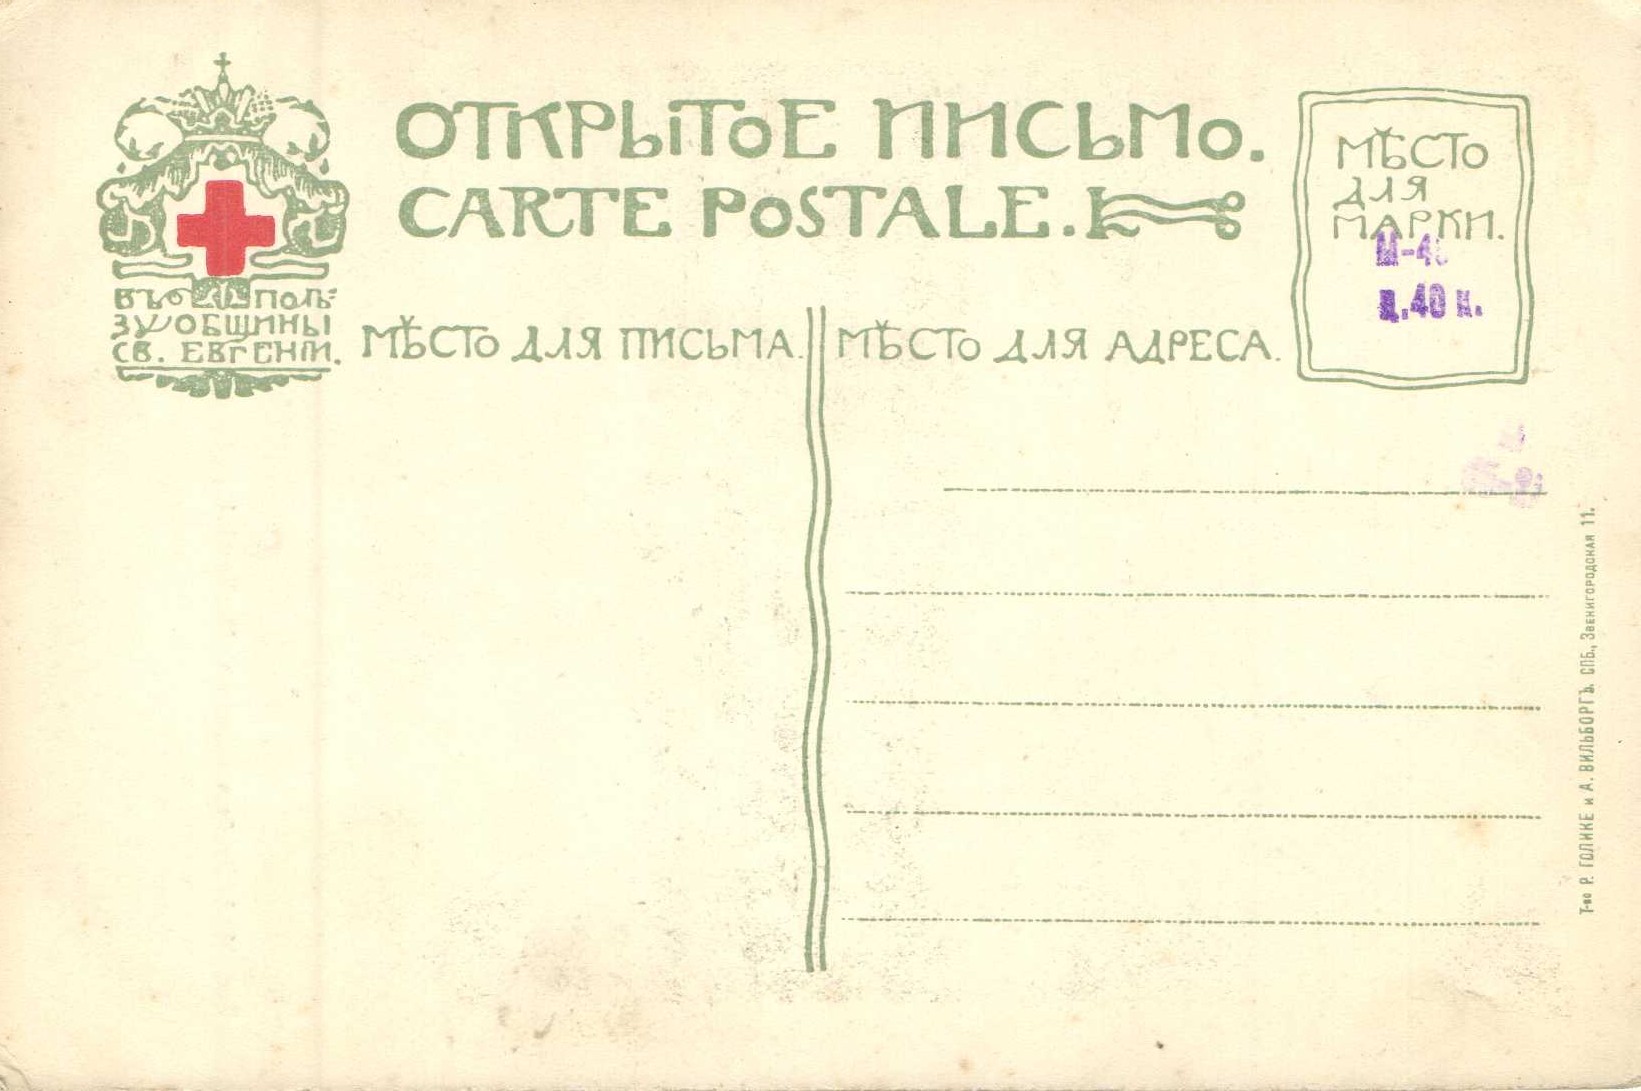 ОТКРЫТОЕ ПИСЬМО.
CARTE POSTALE.
МѢСТО
ДЛЯ
МАРКИ.
ц.40 к.
ВЪ ПОЛЬ-
ЗУ ОБЩИНЫ
СВ. ЕВГЕНIИ.
МѢСТО ДЛЯ ПИСЬМА.
МѢСТО ДЛЯ АДРЕСА.
Т-во Р. ГОЛИКЕ и А. ВИЛЬБОРГЪ. СПБ., Звенигородская 11.